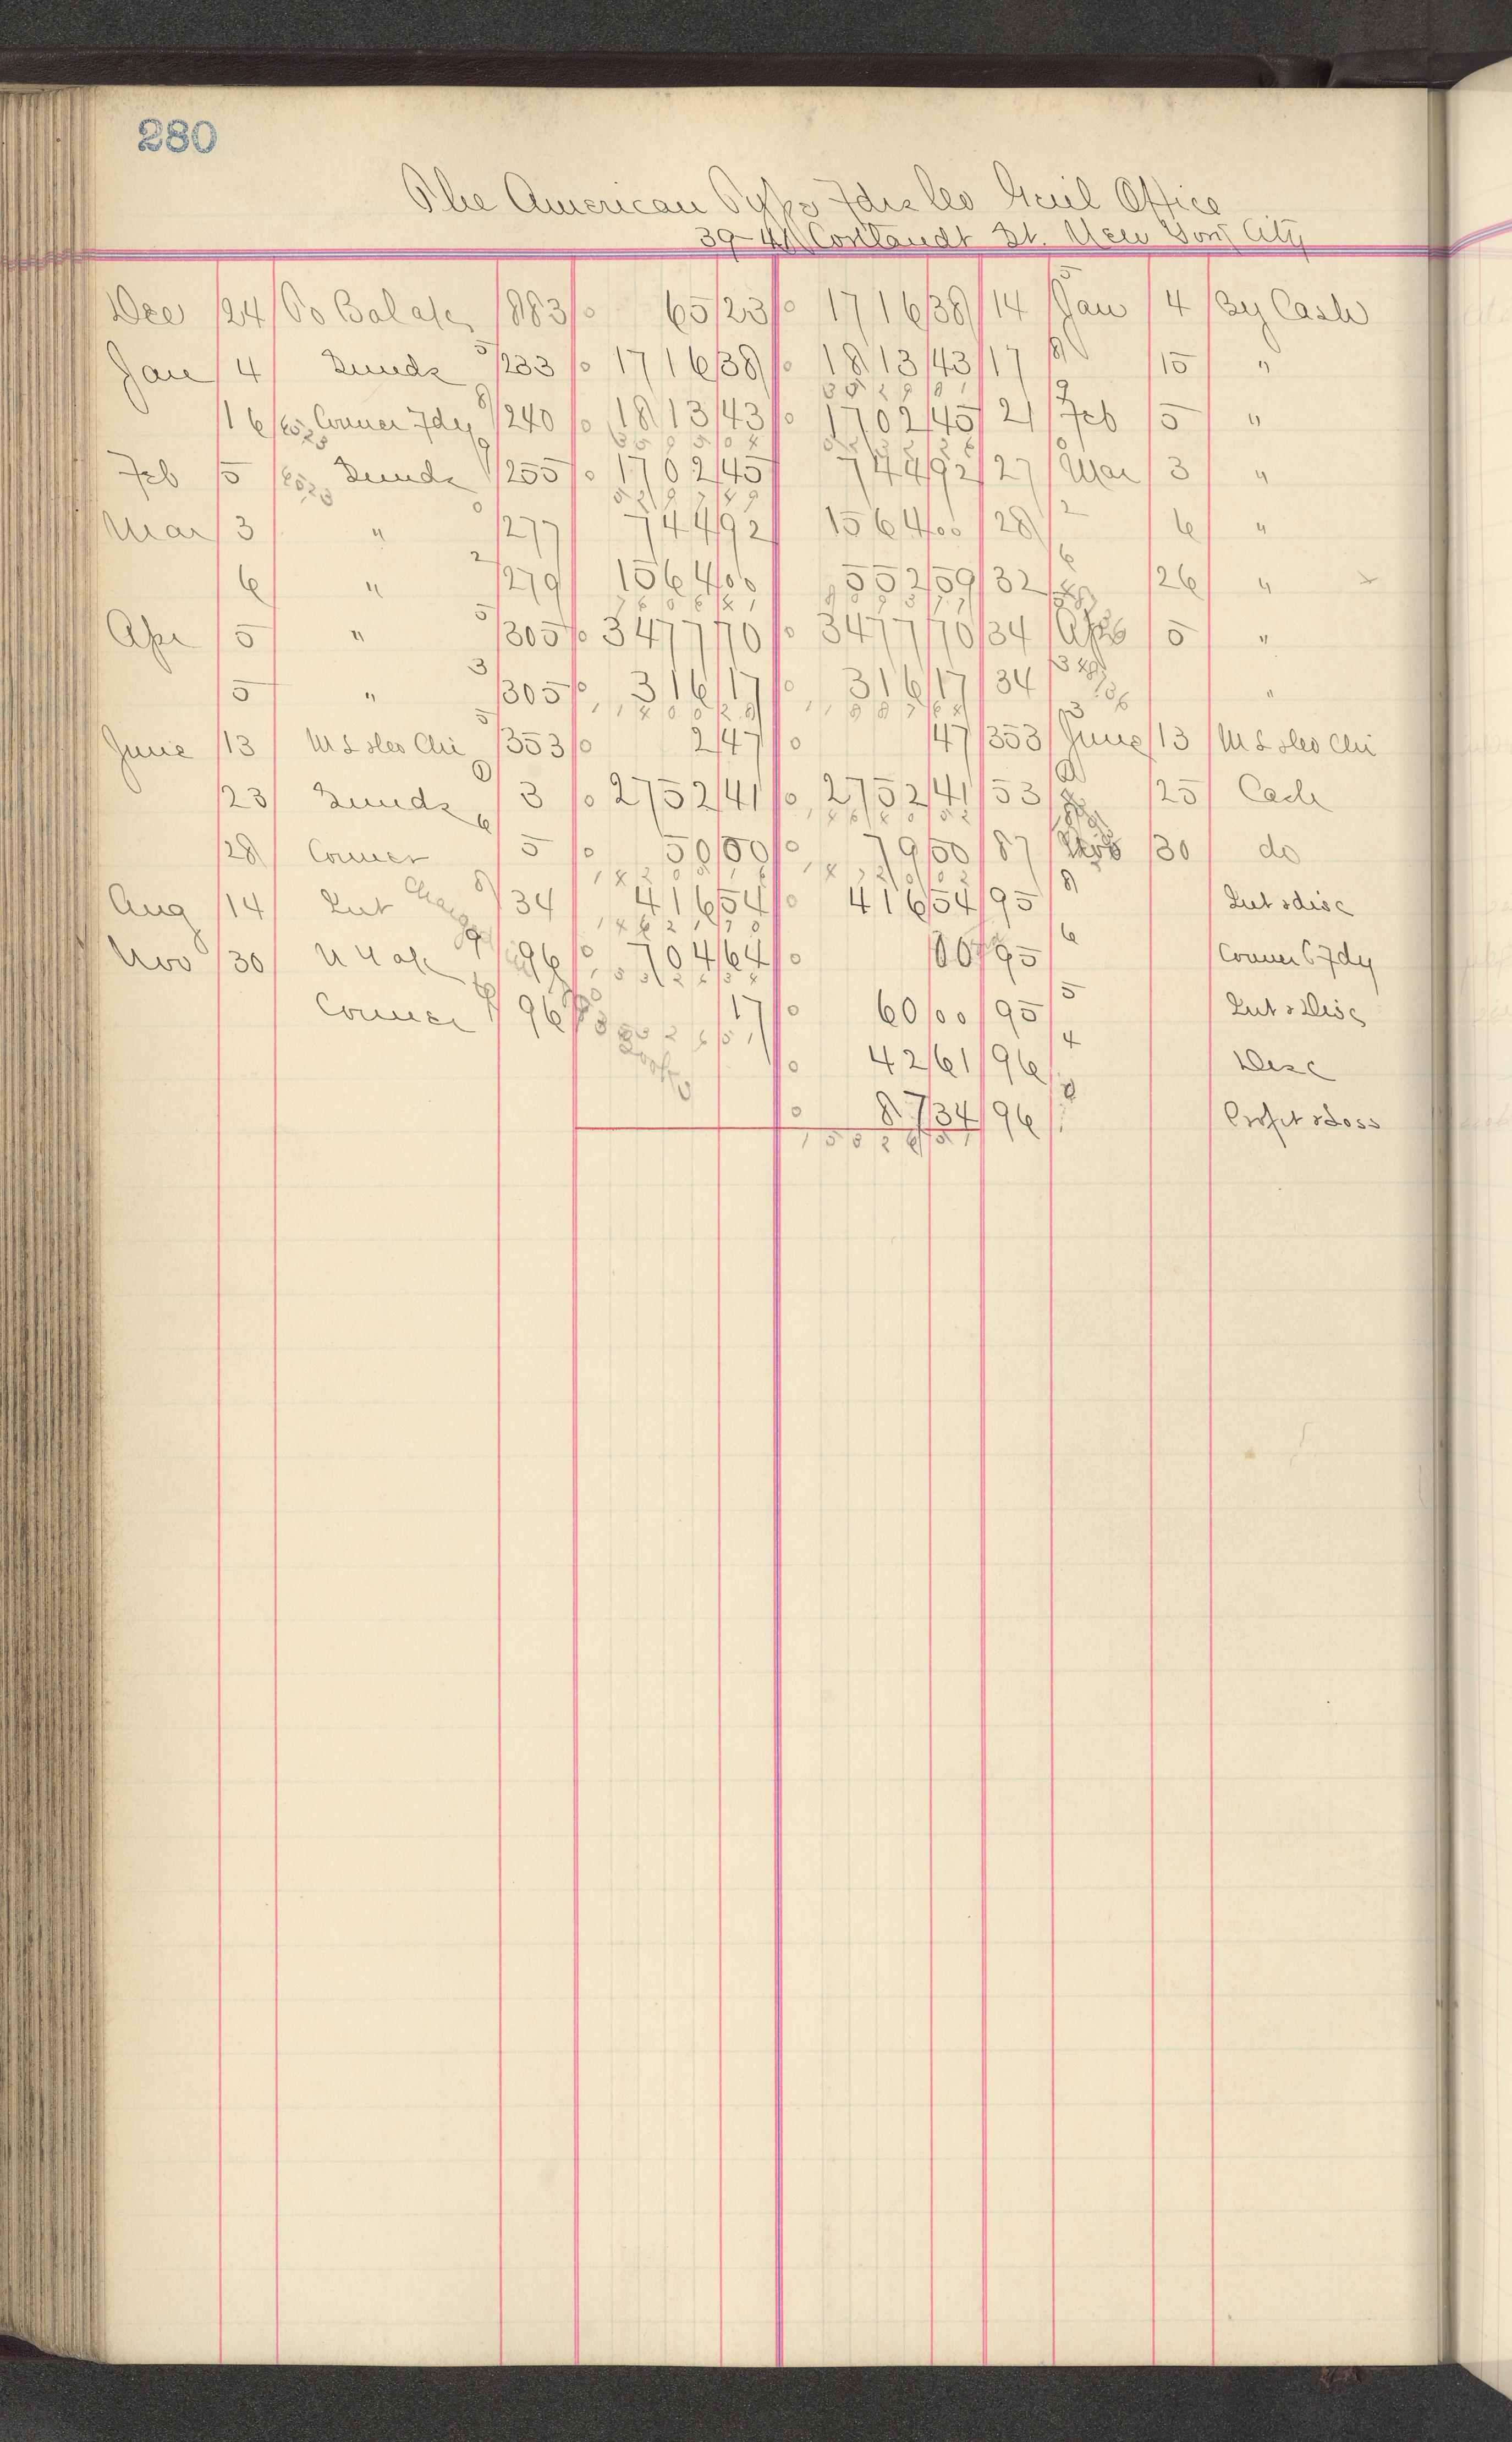 280
The American Type Fdrs Co Genl Office
39-41 Cortlandt St. New York City
Dec 24 To Bal a/c 183 65 23 1716 38 14 Jan 4 By Cash
Jan 4 Sunds 233 1716 38 1813 43 17 15 "
16 Conner Fdy 240 1813 43 1702 45 21 Feb 5 "
Feb 5 Sunds 255 1702 45 744 92 27 Mar 3 "
Mar 3 " 277 744 92 1564 00 28 6 "
6 " 279 1564 00 552 59 32 26 "
Apr 5 " 305 3477 70 3477 70 34 Apr 5 "
5 " 305 316 17 316 17 34 "
June 13 M S & Co Chi 353 2 47 47 353 June 13 M S & Co Chi
23 Sunds 3 2752 41 2752 41 53 25 Cash
28 Conner 5 50 50 79 50 87 Nov 30 do
Aug 14 Int 34 416 54 416 54 95 Int & disc
Nov 30 96 704 64 95 Conner Fdy
Conner 96 17 60 00 95 Int & Disc
42 61 96 Disc
87 34 96 Profit & Loss